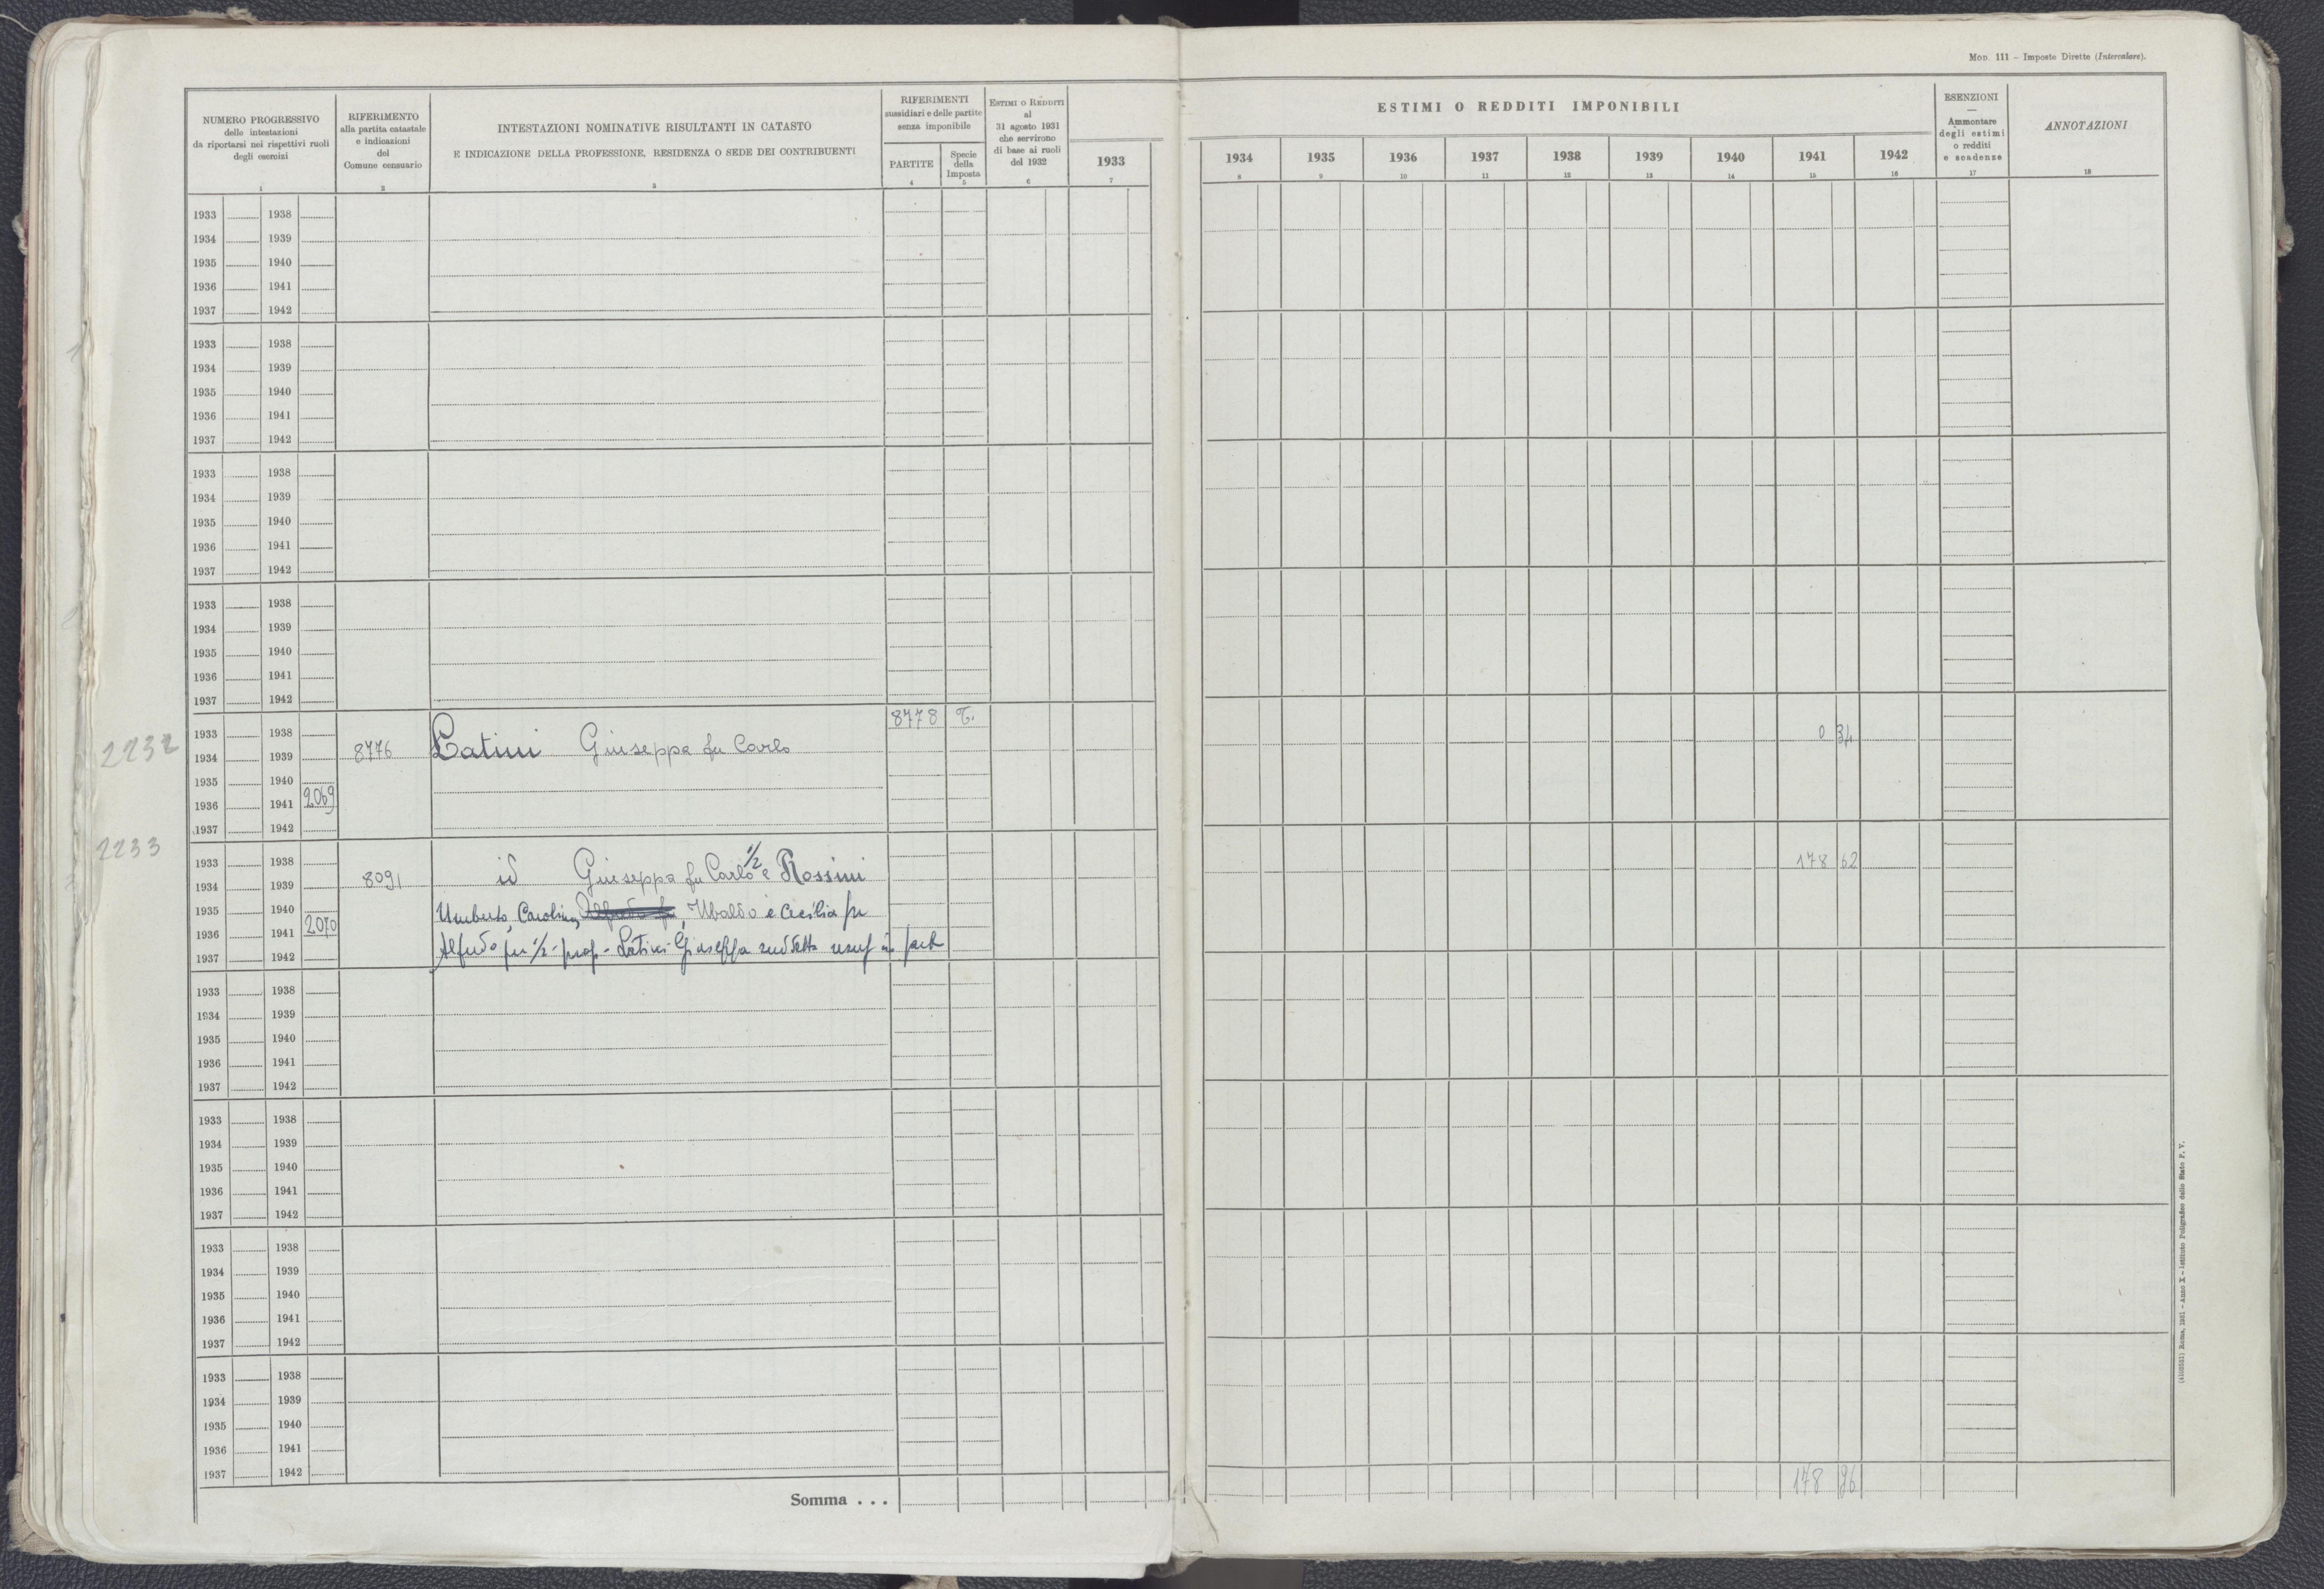 Mod. 111 – Imposte Dirette (Intercalare).
NUMERO PROGRESSIVO
delle intestazioni
da riportarsi nei rispettivi ruoli
degli esercizi
1
RIFERIMENTO
alla partita catastale
e indicazioni
del
Comune censuario
2
INTESTAZIONI NOMINATIVE RISULTANTI IN CATASTO
E INDICAZIONE DELLA PROFESSIONE, RESIDENZA O SEDE DEI CONTRIBUENTI
3
RIFERIMENTI
sussidiari e delle partite
senza imponibile
PARTITE
4
Specie
della
Imposta
5
Estimi o Redditi
al
31 agosto 1931
che servirono
di base ai ruoli
del 1932
6
ESTIMI O REDDITI IMPONIBILI
1933 1934 1935 1936 1937 1938 1939 1940 1941 1942
7 8 9 10 11 12 13 14 15 16
ESENZIONI
—
Ammontare
degli estimi
o redditi
e scadenze
17
ANNOTAZIONI
18
1933 1938
1934 1939
1935 1940
1936 1941
1937 1942
1933 1938
1934 1939
1935 1940
1936 1941
1937 1942
1933 1938
1934 1939
1935 1940
1936 1941
1937 1942
1933 1938
1934 1939
1935 1940
1936 1941
1937 1942
8778 T.
1933 1938
0 34
2232
1934 1939 8776 Latini Giuseppa fu Carlo
1935 1940
1936 1941 2069
1937 1942
2233
1933 1938
178 62
1934 1939 8091 id Giuseppa fu Carlo 1/2 e Rossini
1935 1940 Umberto, Carolina, Ubaldo e Cecilia fu
1936 1941 2070
1937 1942 Alfredo per 1/2 - prop - Latini Giuseppa suddetta usuf in part
1933 1938
1934 1939
1935 1940
1936 1941
1937 1942
1933 1938
1934 1939
1935 1940
1936 1941
1937 1942
1933 1938
1934 1939
1935 1940
1936 1941
1937 1942
1933 1938
1934 1939
1935 1940
1936 1941
1937 1942
Somma . . . 178 96
Roma, 1931 – Anno X – Istituto Poligrafico dello Stato P. V.